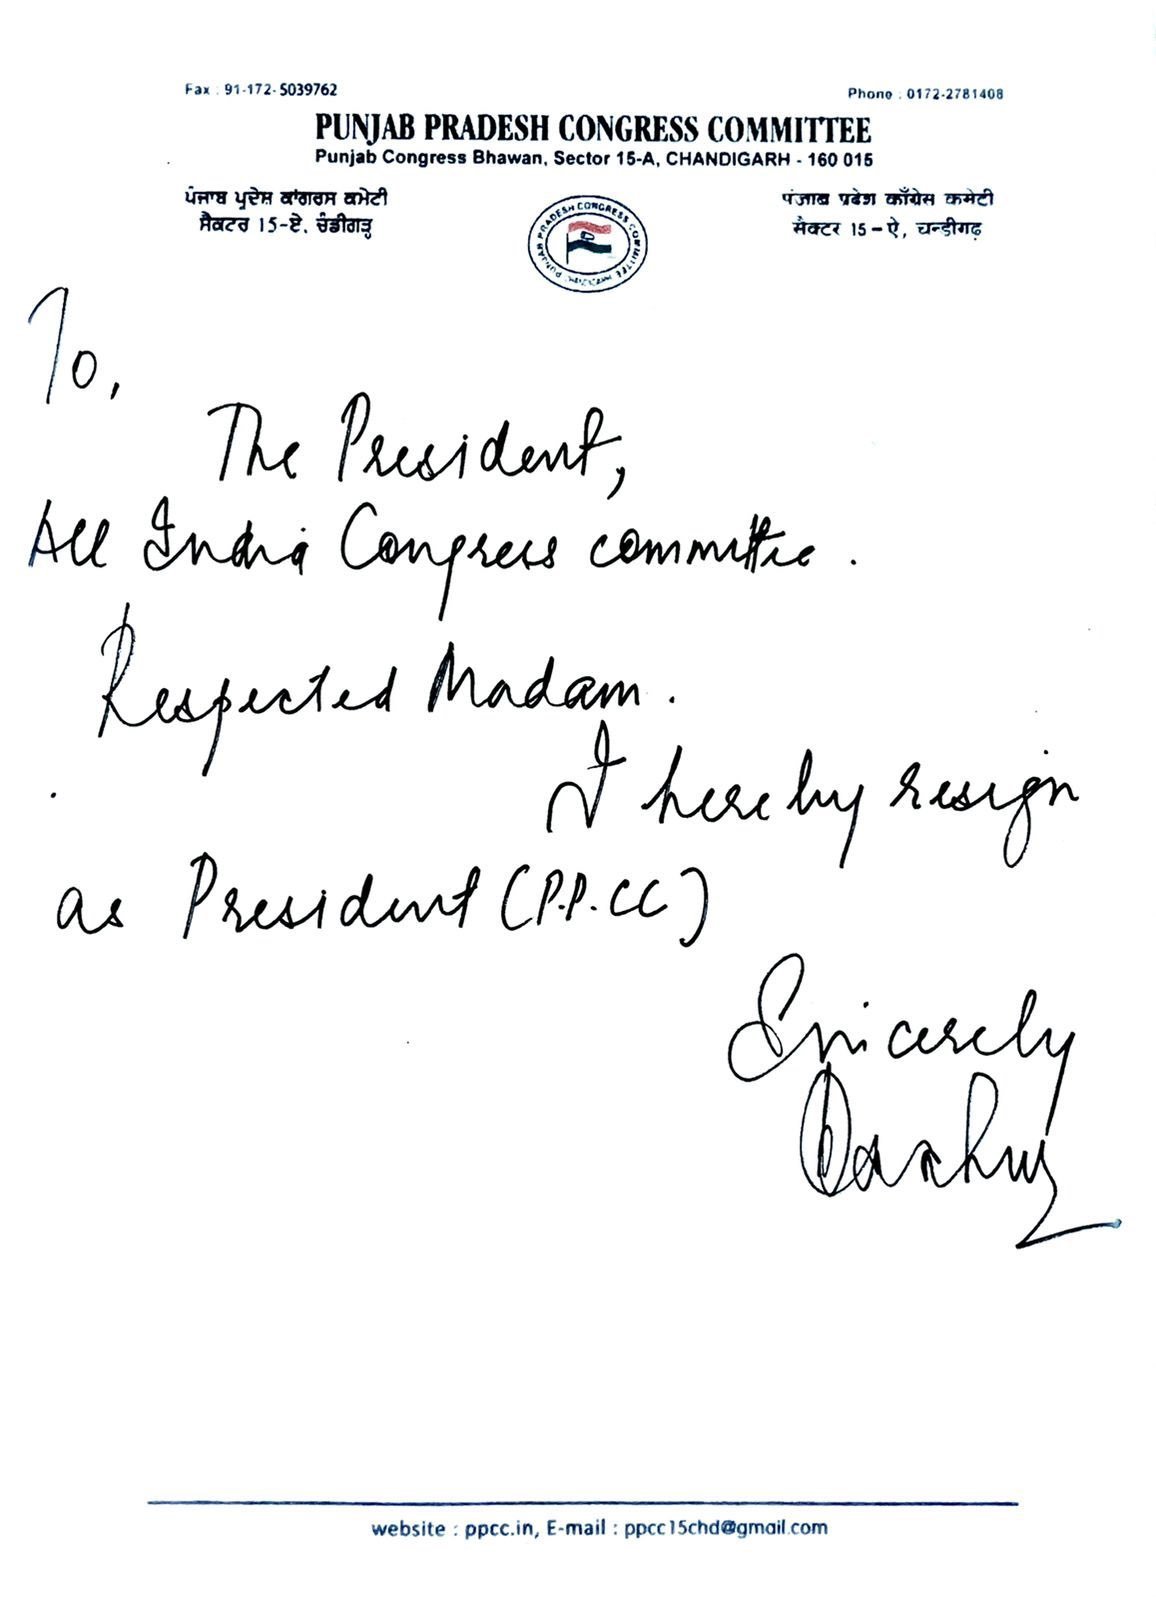 Fax : 91-172-5039762
Phone : 0172-2781408
PUNJAB PRADESH CONGRESS COMMITTEE
Punjab Congress Bhawan, Sector 15-A, CHANDIGARH - 160 015
ਪੰਜਾਬ ਪ੍ਰਦੇਸ਼ ਕਾਂਗਰਸ ਕਮੇਟੀ
ਸੈਕਟਰ 15-ਏ, ਚੰਡੀਗੜ੍ਹ
PUNJAB PRADESH CONGRESS COMMITTEE CHANDIGARH
पंजाब प्रदेश काँग्रेस कमेटी
सैक्टर 15 - ऐ, चन्डीगढ़
To,
The President,
All India Congress committee .
Respected Madam .
I hereby resign
as President (P.P.CC)
Sincerely
website : ppcc.in, E-mail : ppcc15chd@gmail.com